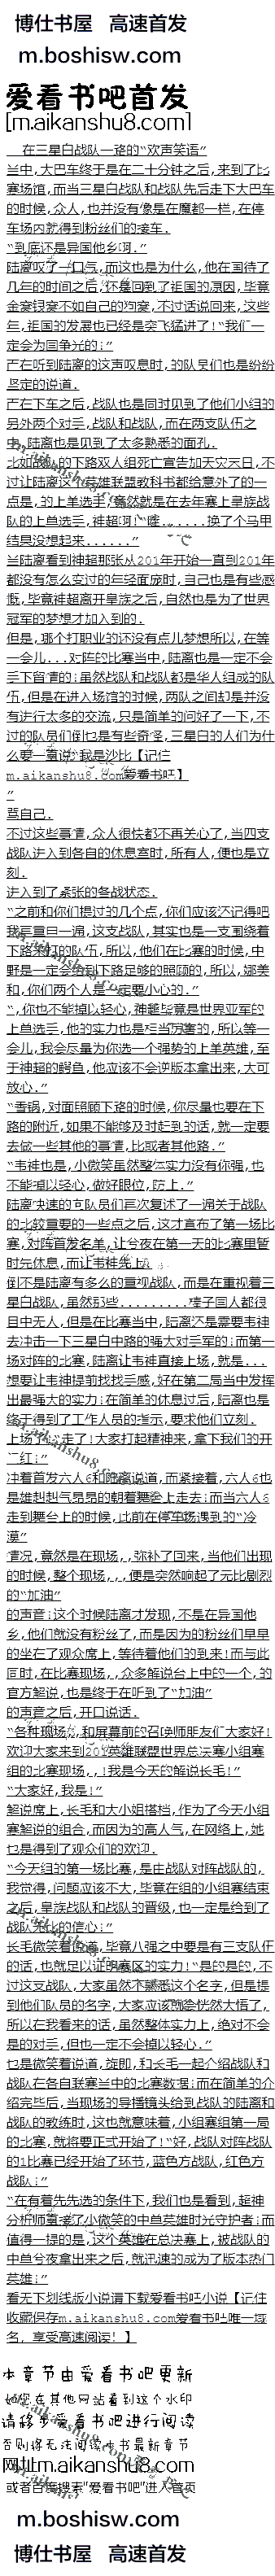 博仕书屋 高速首发
m.boshisw.com
爱看书吧首发
[m.aikanshu8.com]
在三星白战队一路的“欢声笑语”
当中,大巴车终于是在二十分钟之后,来到了比
赛场馆,而当三星白战队和战队先后走下大巴车
的时候,众人,也并没有像是在魔都一样,在停
车场内就得到粉丝们的接车.
“到底还是异国他乡啊.”
陆离叹了一口气,而这也是为什么,他在国待了
几年的时间之后,还是回到了祖国的原因,毕竟
金窝银窝不如自己的狗窝,不过话说回来,这些
年,祖国的发展也已经是突飞猛进了!“我们一
定会为国争光的;”
而在听到陆离的这声叹息时,的队员们也是纷纷
坚定的说道.
而在下车之后,战队也是同时见到了他们小组的
另外两个对手,战队和战队,而在两支队伍之
中,陆离也是见到了太多熟悉的面孔.
比如的下路双人组死亡宣告加天灾末日,不
过让陆离这个英雄联盟教科书都给意外了的一
点是,的上单选手,竟然就是在去年赛上皇族战
队的上单选手,神超啊!“噻......换了个马甲
结果没想起来......”
当陆离看到神超那张从201年开始一直到201年
都没有怎么变过的年轻面庞时,自己也是有些感
慨,毕竟神超离开皇族之后,自然也是为了世界
冠军的梦想才加入到的.
但是,哪个打职业的还没有点儿梦想所以,在等
一会儿...对阵的比赛当中,陆离也是一定不会
手下留情的;虽然战队和战队都是华人组成的队
伍,但是在进入场馆的时候,两队之间却是并没
有进行太多的交流,只是简单的问好了一下,不
过的队员们倒也是有些奇怪,三星白的人们为什
么要一直说“我是沙比【记住
m.aikanshu8.com爱看书吧】
”
骂自己.
不过这些事情,众人很快都不再关心了,当四支
战队进入到各自的休息室时,所有人,便也是立
刻.
进入到了紧张的备战状态.
“之前和你们提过的几个点,你们应该还记得吧
我再重申一遍,这支战队,其实也是一支围绕着
下路来打的队伍,所以,他们在比赛的时候,中
野是一定会给到下路足够的照顾的,所以,娜美
和,你们两个人是一定要小心的.”
“,你也不能掉以轻心,神超毕竟是世界亚军的
上单选手,他的实力也是相当厉害的,所以等一
会儿,我会尽量为你选一个强势的上单英雄,至
于神超的鳄鱼,他应该不会逆版本拿出来,大可
放心.”
“香锅,对面照顾下路的时候,你尽量也要在下
路的附近,如果不能够及时赶到的话,就一定要
去做一些其他的事情,比或者其他路.”
“韦神也是,小微笑虽然整体实力没有你强,也
不能掉以轻心,做好眼位,防上.”
陆离快速的向队员们再次复述了一遍关于战队
的比较重要的一些点之后,这才宣布了第一场比
赛,对阵首发名单,让兮夜在第一天的比赛里暂
时先休息,而让韦神先上.
倒不是陆离有多么的重视战队,而是在重视着三
星白战队,虽然那些.........棒子国人都很
目中无人,但是在比赛当中,陆离还是需要韦神
去冲击一下三星白中路的强大对手军的;而第一
场对阵的比赛,陆离让韦神直接上场,就是...
想要让韦神提前找找手感,好在第二局当中发挥
出最强大的实力;在简单的休息过后,陆离也是
终于得到了工作人员的指示,要求他们立刻.
上场了“走了!大家打起精神来,拿下我们的开
门红;”
冲着首发六人6和陆离说道,而紧接着,六人6也
是雄赳赳气昂昂的朝着舞台上走去;而当六人6
走到舞台上的时候,此前在停车场遇到的“冷
漠”
情况,竟然是在现场,,弥补了回来,当他们出现
的时候,整个现场,,,便是突然响起了无比剧烈
的“加油”
的声音;这个时候陆离才发现,不是在异国他
乡,他们就没有粉丝了,而是因为的粉丝们早早
的坐在了观众席上,等待着他们的到来!而与此
同时,在比赛现场,,众多解说台上中的一个,的
官方解说,也是终于在听到了“加油”
的声音之后,开口说话.
“各种现场,,和屏幕前的召唤师朋友们大家好!
欢迎大家来到20英雄联盟世界总决赛小组赛
组的比赛现场,,!我是今天的解说长毛!”
“大家好,我是!”
解说席上,长毛和大小姐搭档,作为了今天小组
赛解说的组合,而因为的高人气,在网络上,她
也是得到了观众们的欢迎.
“今天组的第一场比赛,是由战队对阵战队的,
我觉得,问题应该不大,毕竟在组的小组赛结束
之后,皇族战队和战队的晋级,也一定是给到了
战队无比的信心;”
长毛微笑着说道,毕竟八强之中要是有三支队伍
的话,也就足以证明赛区的实力!“是的是的,不
过这支战队,大家虽然不熟悉这个名字,但是提
到他们队员的名字,大家应该就会恍然大悟了,
所以在我看来的话,虽然整体实力上,绝对不会
是的对手,但也一定不会掉以轻心.”
也是微笑着说道,旋即,和长毛一起介绍战队和
战队在各自联赛中的比赛数据;而在简单的介
绍完毕后,当现场的导播镜头给到战队的陆离和
战队的教练时,这也就意味着,小组赛组第一局
的比赛,就将要正式开始了!“好,战队对阵战队
的1比赛已经开始了环节,蓝色方战队,红色方
战队;”
“在有着先先选的条件下,我们也是看到,超神
分析师直接了小微笑的中单英雄时光守护者;而
值得一提的是,这个英雄在总决赛上,被战队的
中单兮夜拿出来之后,就迅速的成为了版本热门
英雄;”
看无下划线版小说请下载爱看书吧小说【记住
收藏保存m.aikanshu8.com爱看书吧唯一域
名，享受高速阅读！】
本章节由爱看书吧更新
如您在其他网站看到这个水印
请移步爱看书吧进行阅读
否则将无法阅读本书最新章节
网址m.aikanshu8.com
或者百度搜索“爱看书吧”进入首页
m.boshisw.com
博仕书屋 高速首发